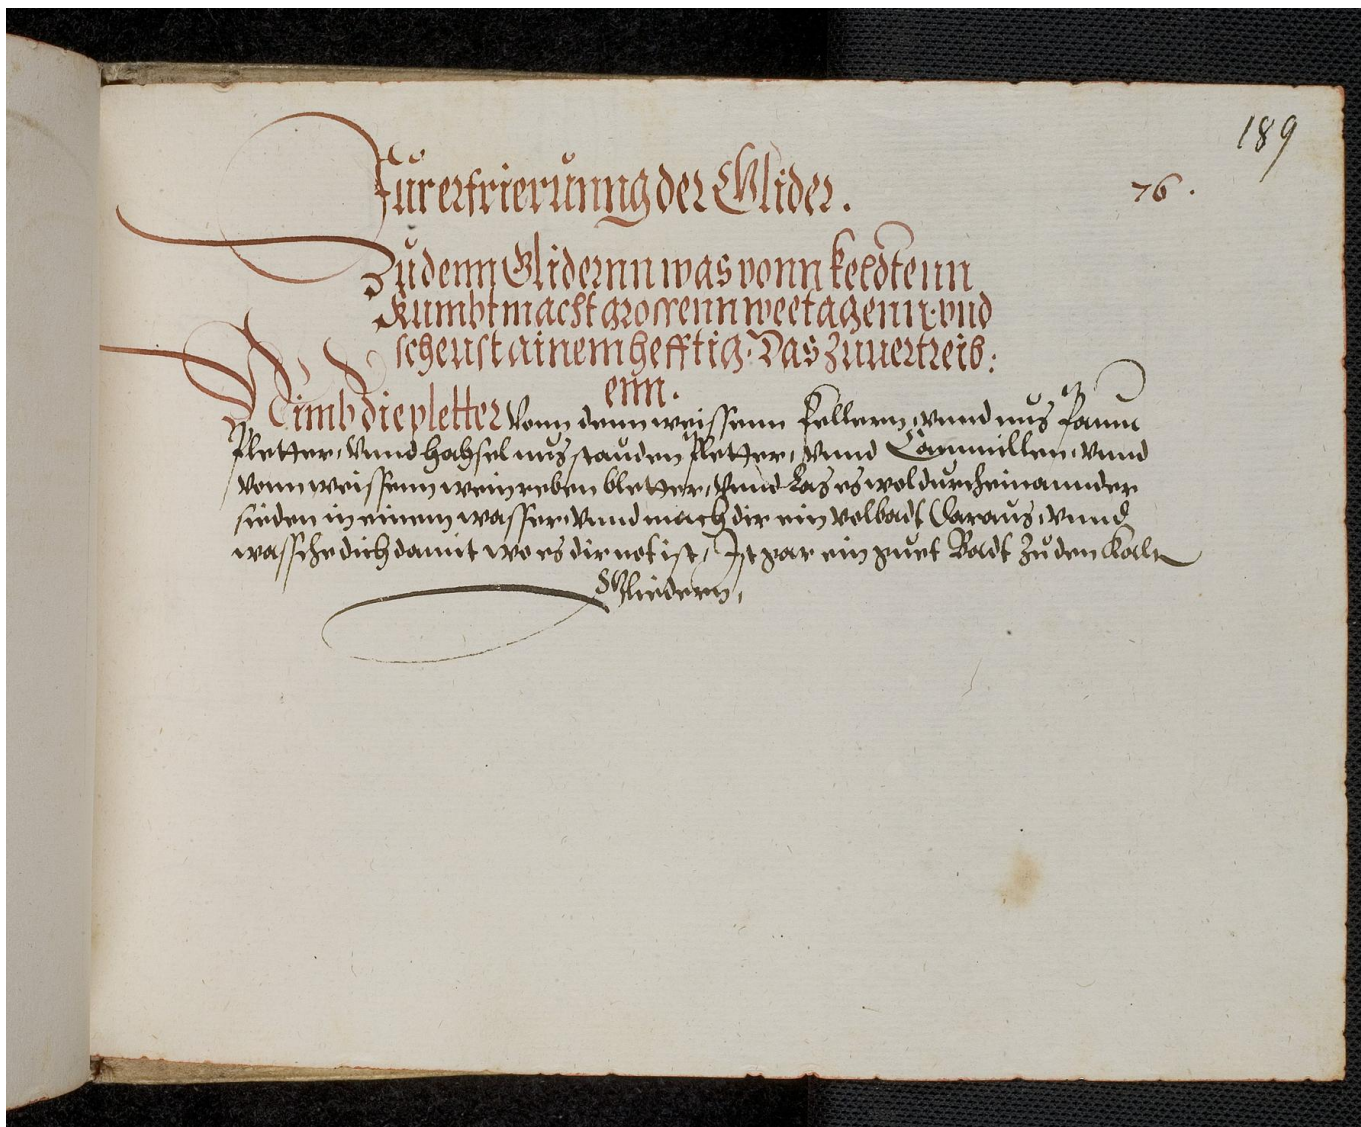 189
Für erfrierunng der Glider.
76.
Zu denn Glidernn was vonn keldtenn
Kumbt macht grossenn weetagenn. vnd
scheust ainem hefftig. Das zuuertreib:
enn.
Nimb die pletter vonn denn weissenn fellern, vnnd nus paum
Pletter, vnnd haßel nus stauden Pletter, vnnd Cammillen, vnnd
vonn weissenn weinreben bletter, vnnd Las es wol durcheinannder
sieden in einem wasser, vnnd mach dir ein volbadt daraus, vnnd
wassche dich damit wo es dir not ist, Ist gar ein guet Badt Zu den Kaltn
Gliedern,